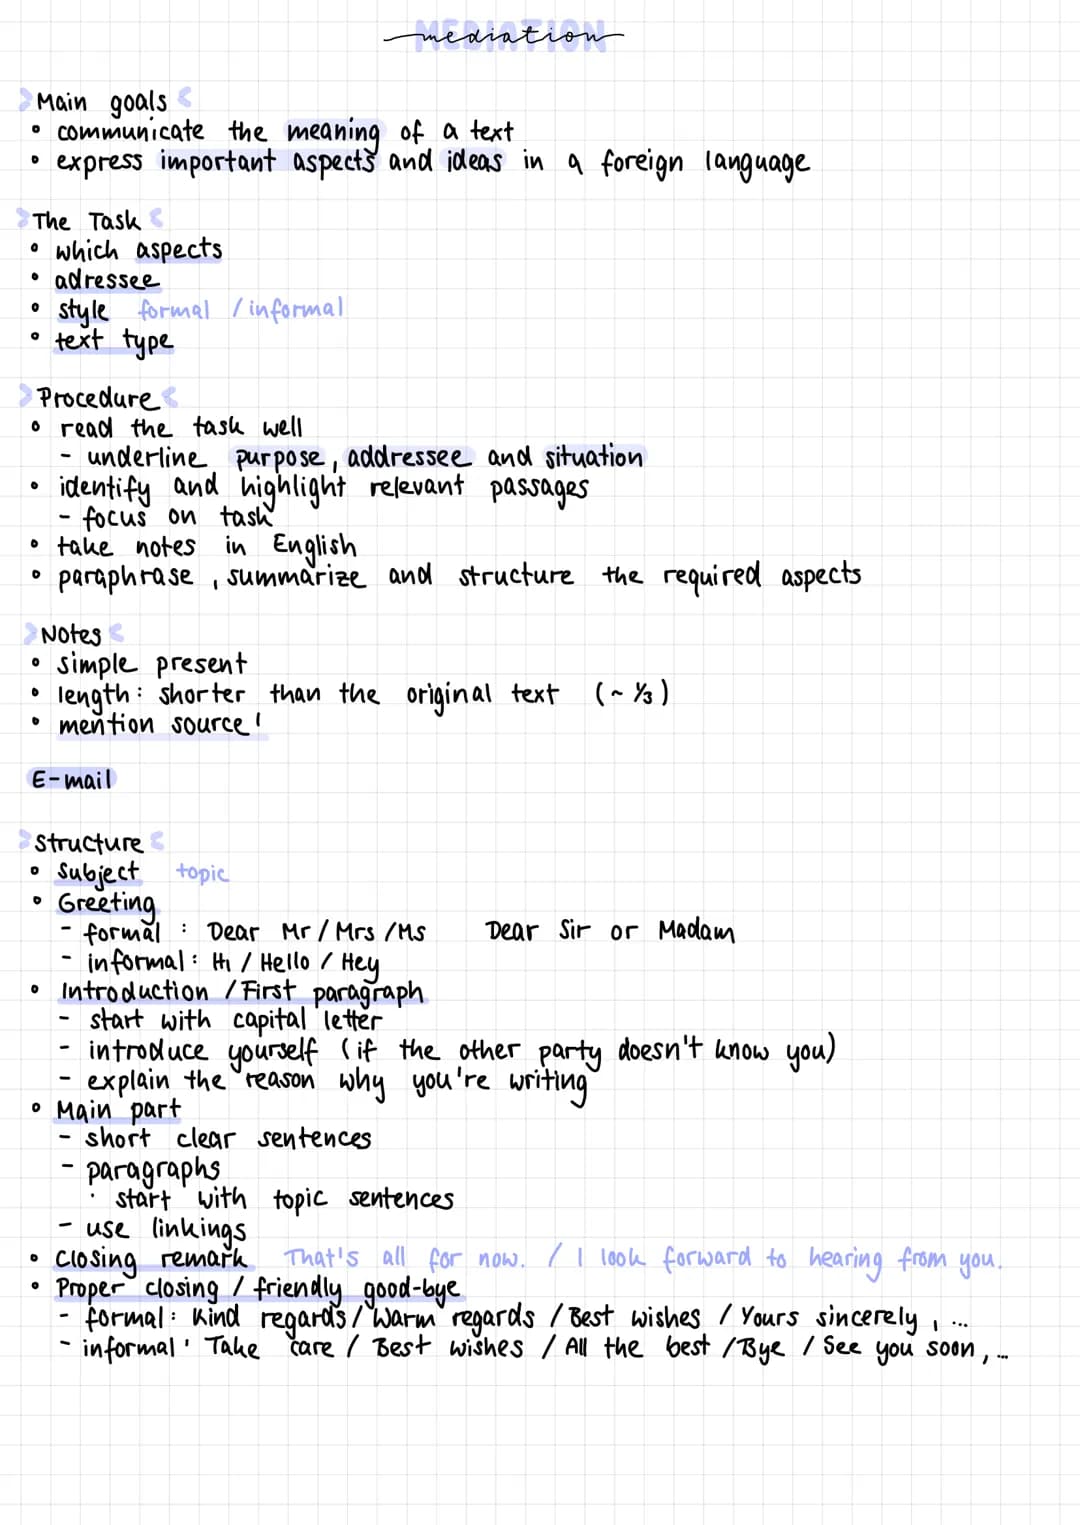 MEDIATION
mediation
Main goals
• communicate the meaning of a text
• express important aspects and ideas in a foreign language
The Task
• which aspects
• adressee
• style formal / informal
• text type
Procedure
• read the task well
- underline purpose, addressee and situation
• identify and highlight relevant passages
- focus on task
• take notes in English
• paraphrase, summarize and structure the required aspects
Notes
• simple present
• length: shorter than the original text (~ 1/3)
• mention source!
E-mail
Structure
• Subject topic
• Greeting
- formal: Dear Mr / Mrs / Ms Dear Sir or Madam
- informal: Hi / Hello / Hey
• Introduction / First paragraph
- start with capital letter
- introduce yourself (if the other party doesn't know you)
- explain the reason why you're writing
• Main part
- short clear sentences
- paragraphs
· start with topic sentences
- use linkings
• Closing remark That's all for now. / I look forward to hearing from you.
• Proper closing / friendly good-bye
- formal: Kind regards / Warm regards / Best wishes / Yours sincerely, ...
- informal: Take care / Best wishes / All the best / Bye / See you soon, ...